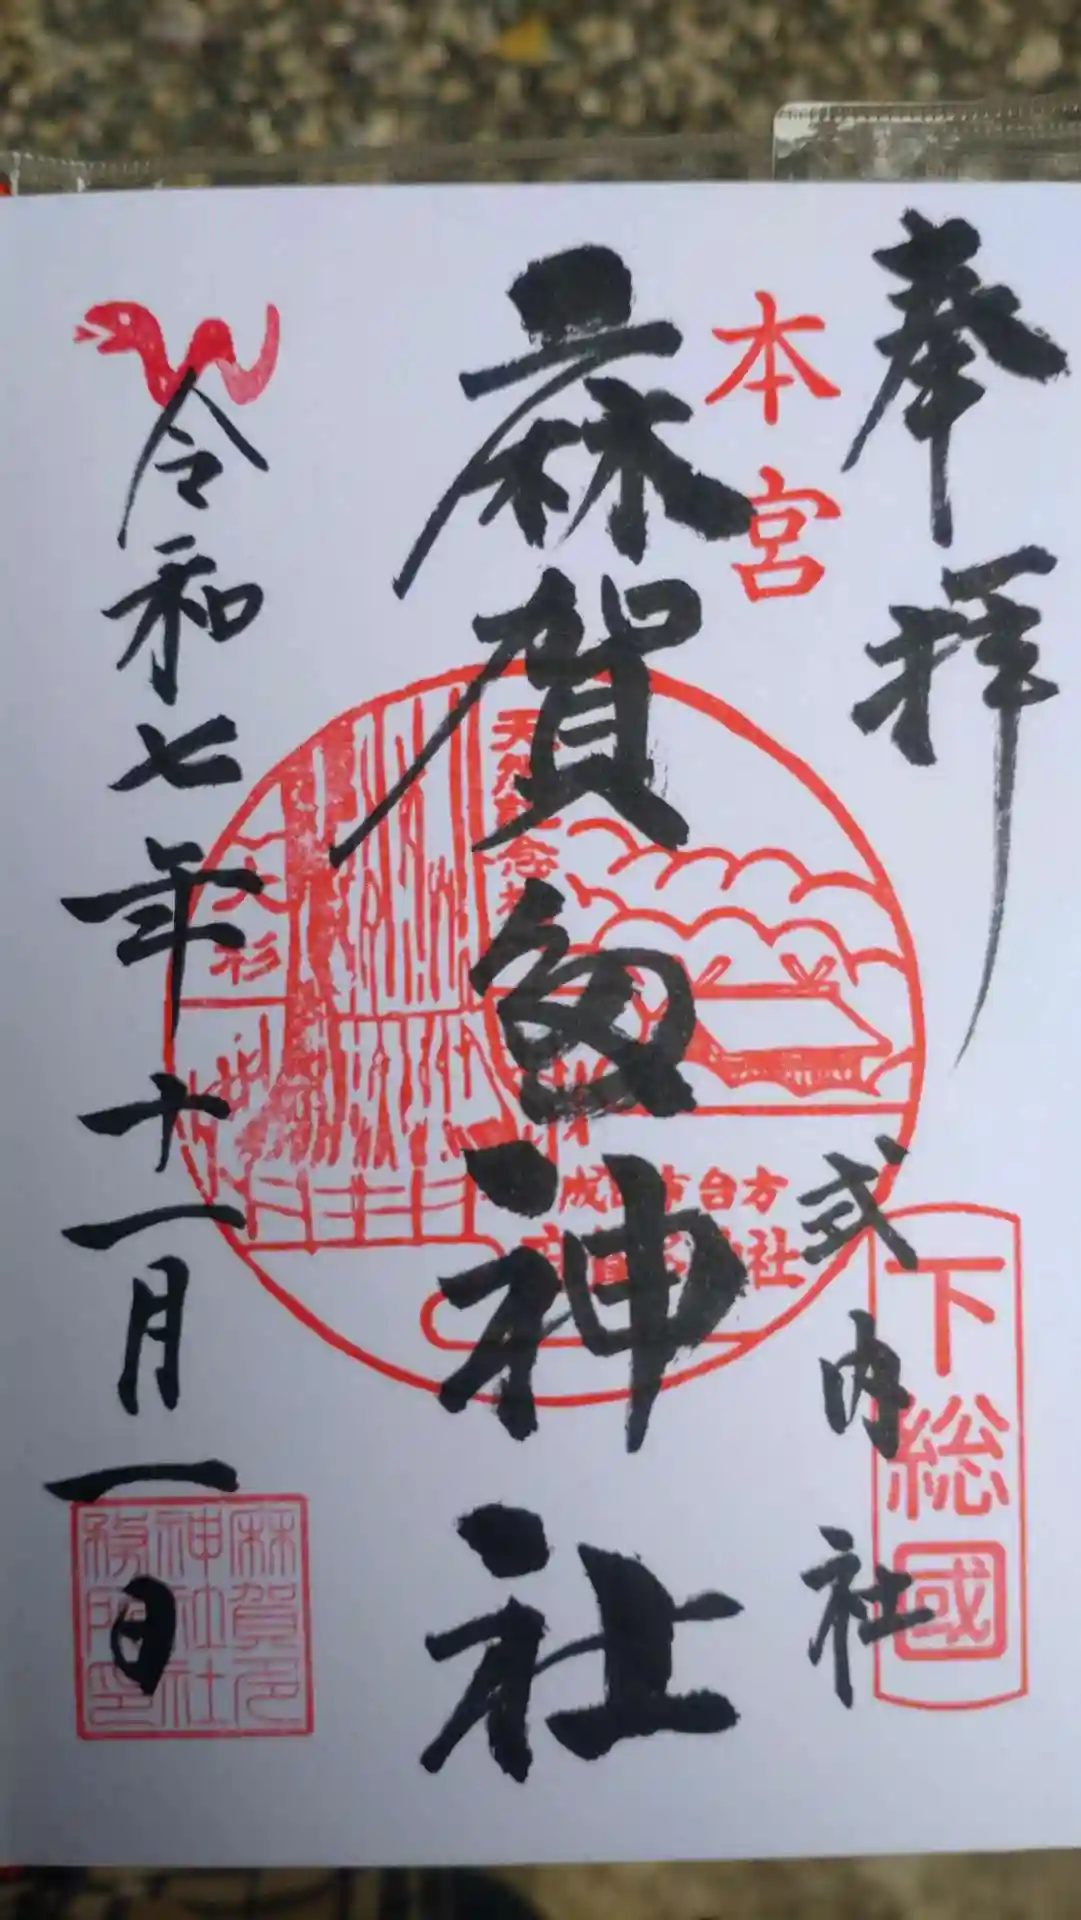 奉拝
式内社
下総國
本宮
麻賀多神社
天然記念
大杉
成田市台方
麻賀多神社
令和七年十一月一日
麻賀多
神社社
務所印